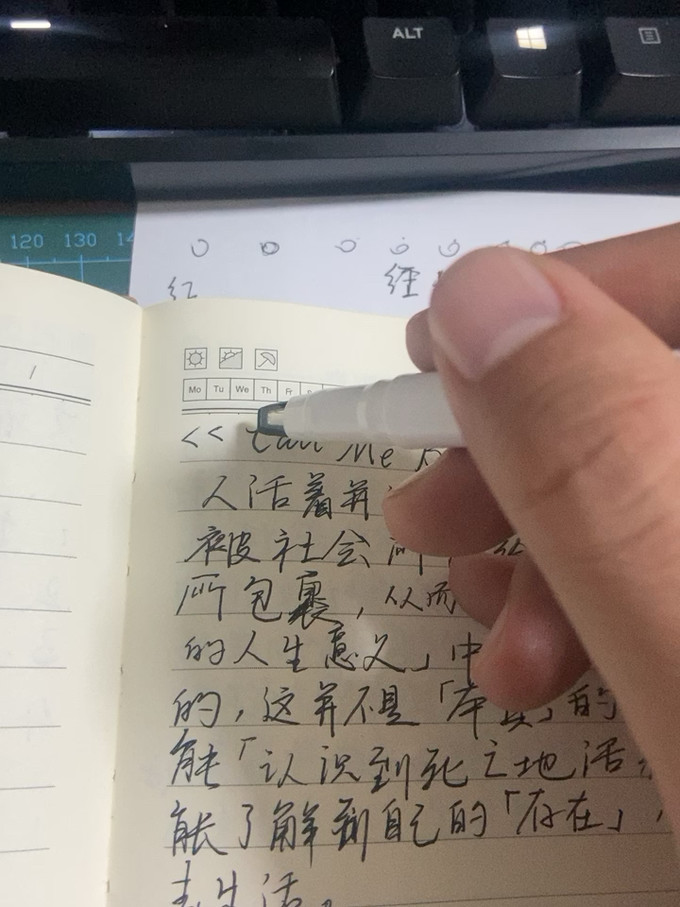 ALT
120 130 14
红 经
Mo Tu We Th Fr
<< Call Me
人活着并
被社会所
所包裹，从而
的人生意义」中
的，这并不是「本真」的
能「认识到死亡地活
能了解到自己的「存在」，
去生活。